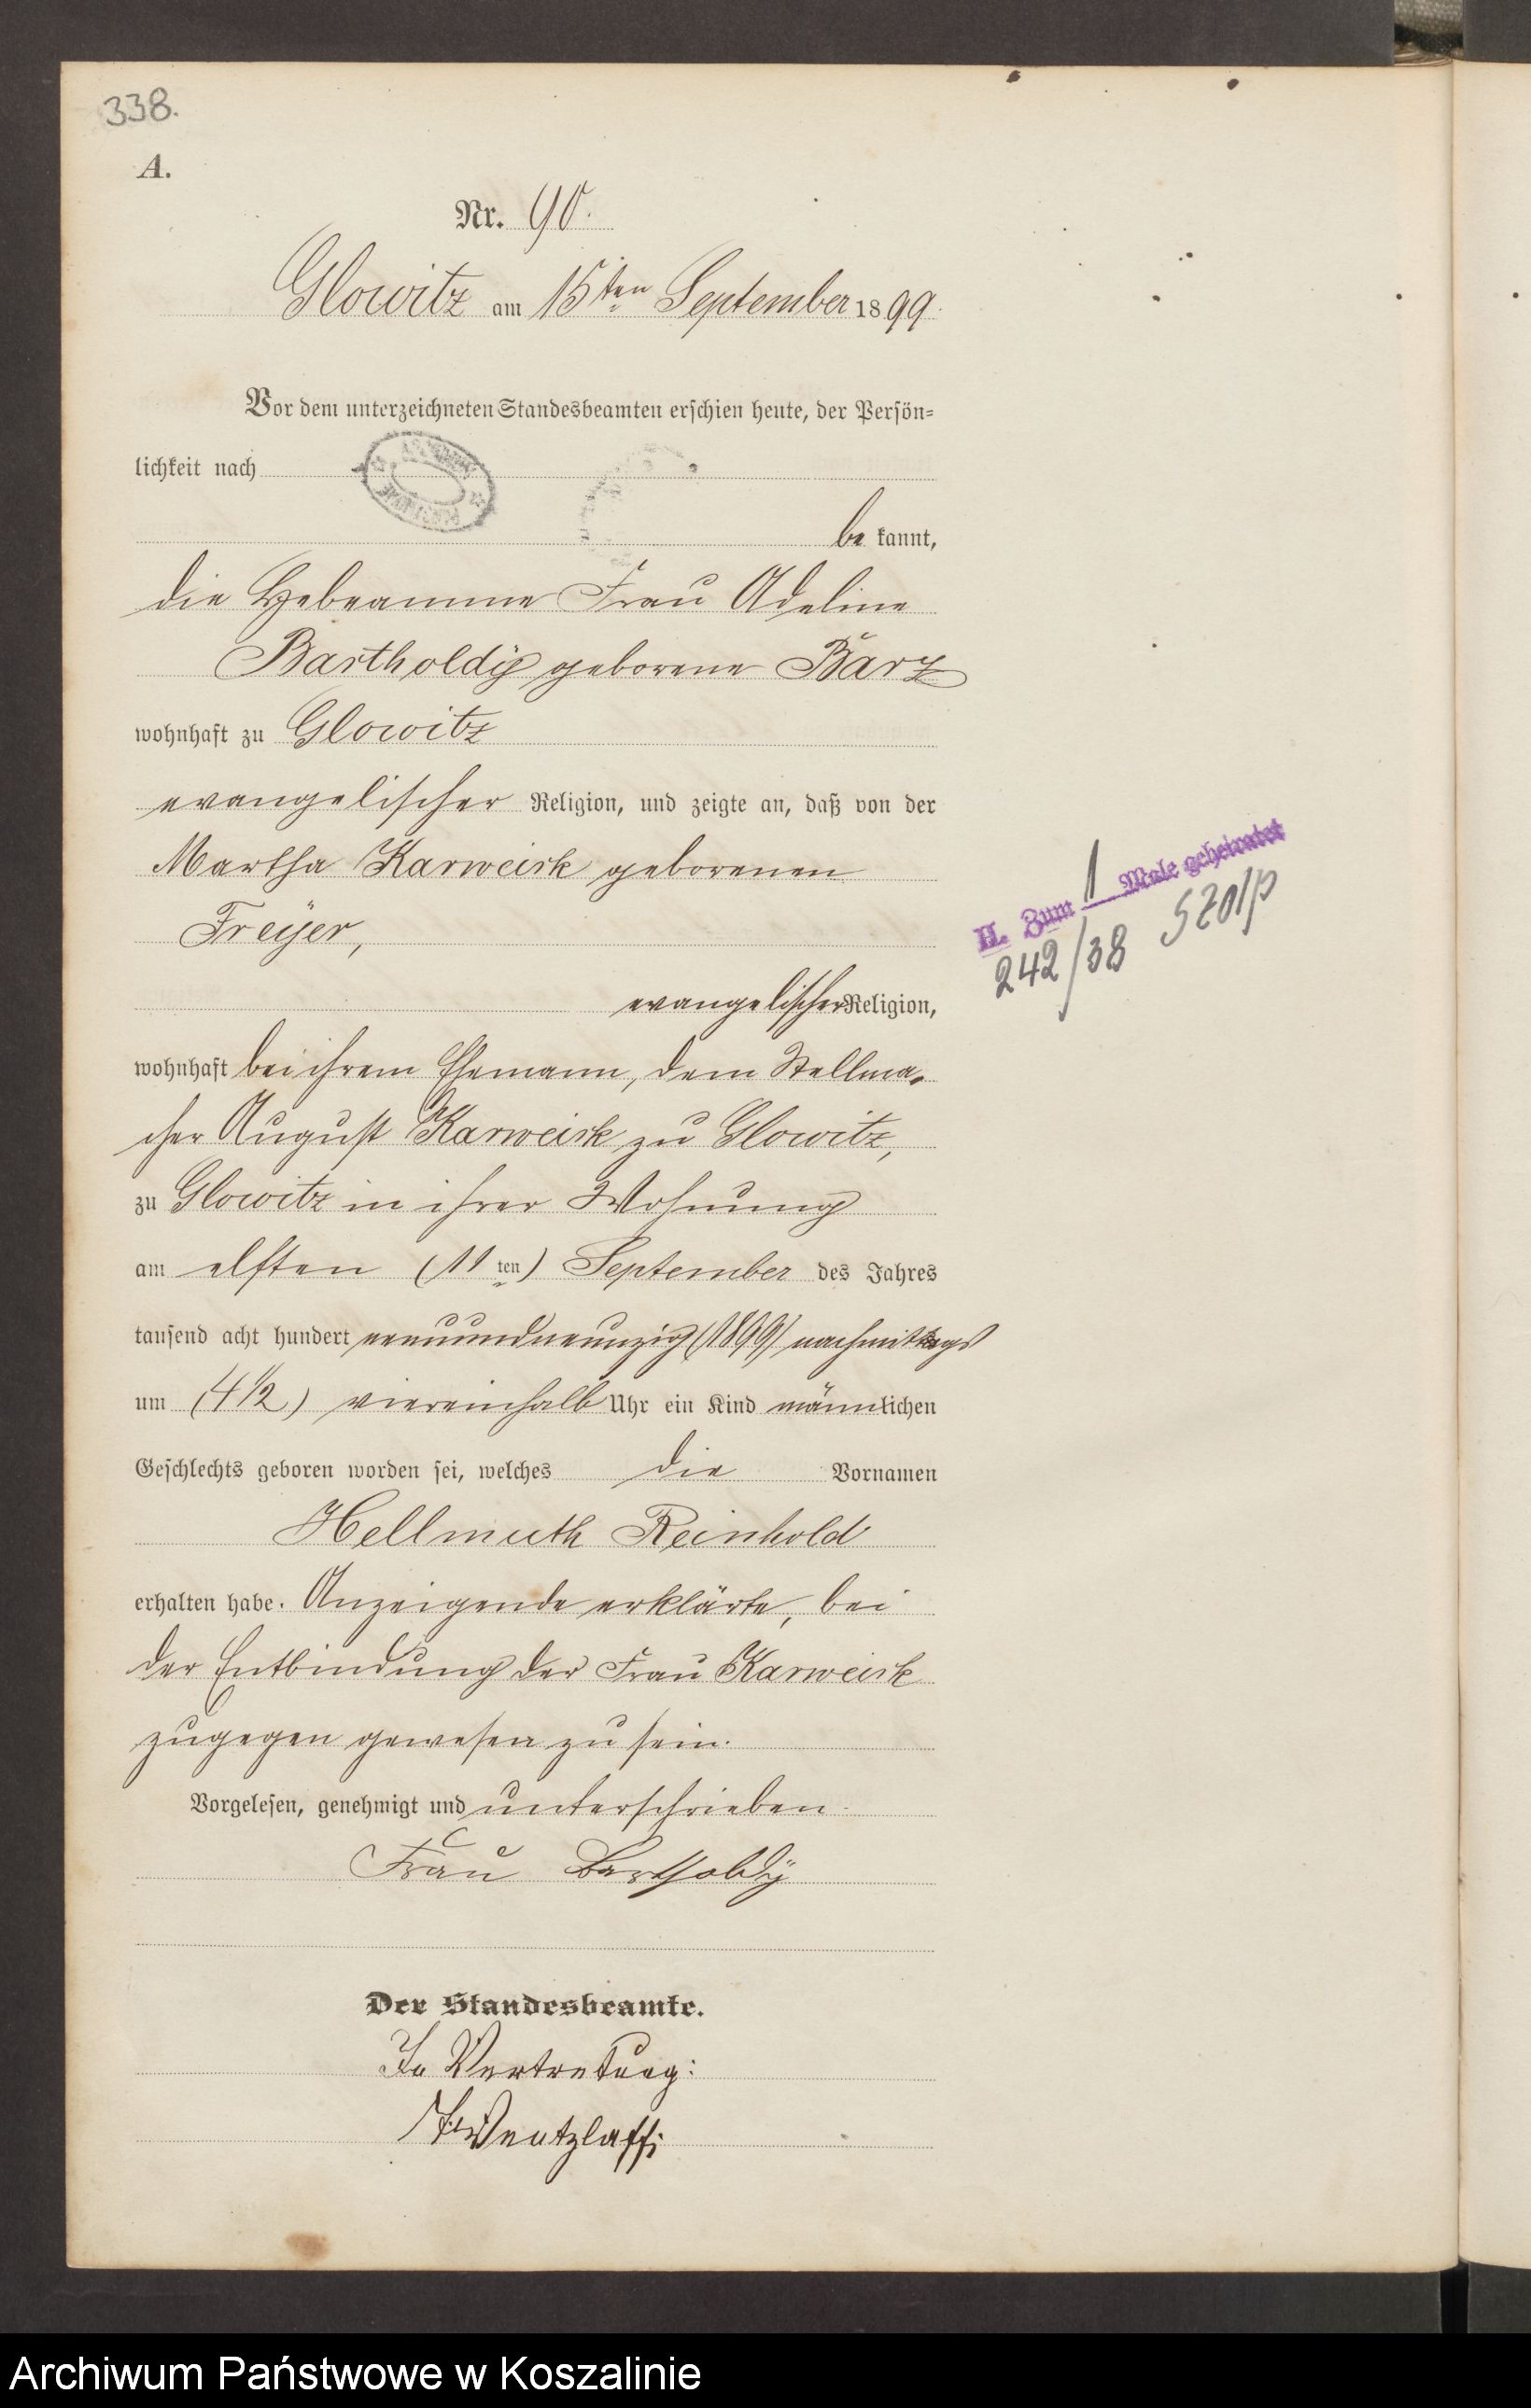 338.
A.
Nr. 90.
Glowitz am 15ten September 1899.
Vor dem unterzeichneten Standesbeamten erschien heute, der Persön=
lichkeit nach
bekannt,
die Hebeamme Frau Adeline
Bartholdÿ geborene Barz
wohnhaft zu Glowitz
evangelischer Religion, und zeigte an, daß von der
Martha Karweick geborenen
Freÿer,
evangelischer Religion,
wohnhaft bei ihrem Ehemann, dem Stellma-
cher August Karweick zu Glowitz,
zu Glowitz in ihrer Wohnung
am elften (11ten) September des Jahres
tausend acht hundert neunundneunzig (1899) nachmittags
um (4 1/2) viereinhalb Uhr ein Kind männlichen
Geschlechts geboren worden sei, welches die Vornamen
Hellmuth Reinhold
erhalten habe. Anzeigende erklärte, bei
der Entbindung der Frau Karweick
zugegen gewesen zu sein.
Vorgelesen, genehmigt und unterschrieben.
Frau Bartholdÿ
Der Standesbeamte.
In Vertretung:
Wentzlaff
H. Zum 1 Male geheiratet
242/38 Stolp
Archiwum Państwowe w Koszalinie